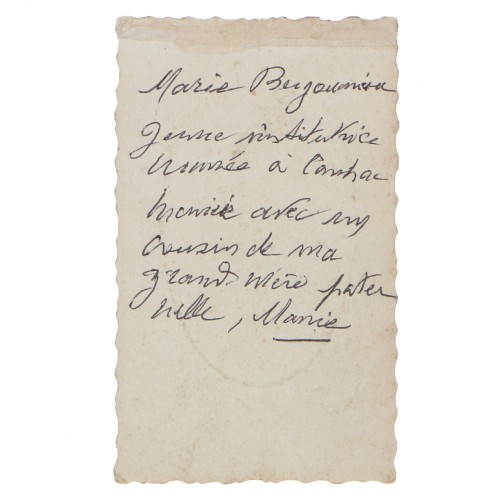 Marie
Jeune institutrice
nommée à
mariée avec un
cousin de ma
grand mère pater
nelle, Marie